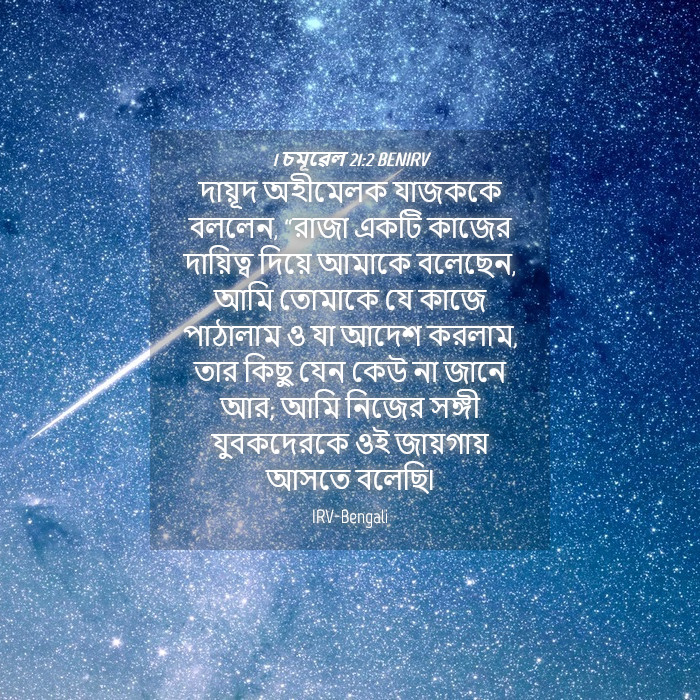 I চমূৱেল 21:2 BENIRV
দায়ূদ অহীমেলক যাজককে
বললেন, “রাজা একটি কাজের
দায়িত্ব দিয়ে আমাকে বলেছেন,
আমি তোমাকে যে কাজে
পাঠালাম ও যা আদেশ করলাম,
তার কিছু যেন কেউ না জানে
আর; আমি নিজের সঙ্গী
যুবকদেরকে ওই জায়গায়
আসতে বলেছি।
IRV-Bengali